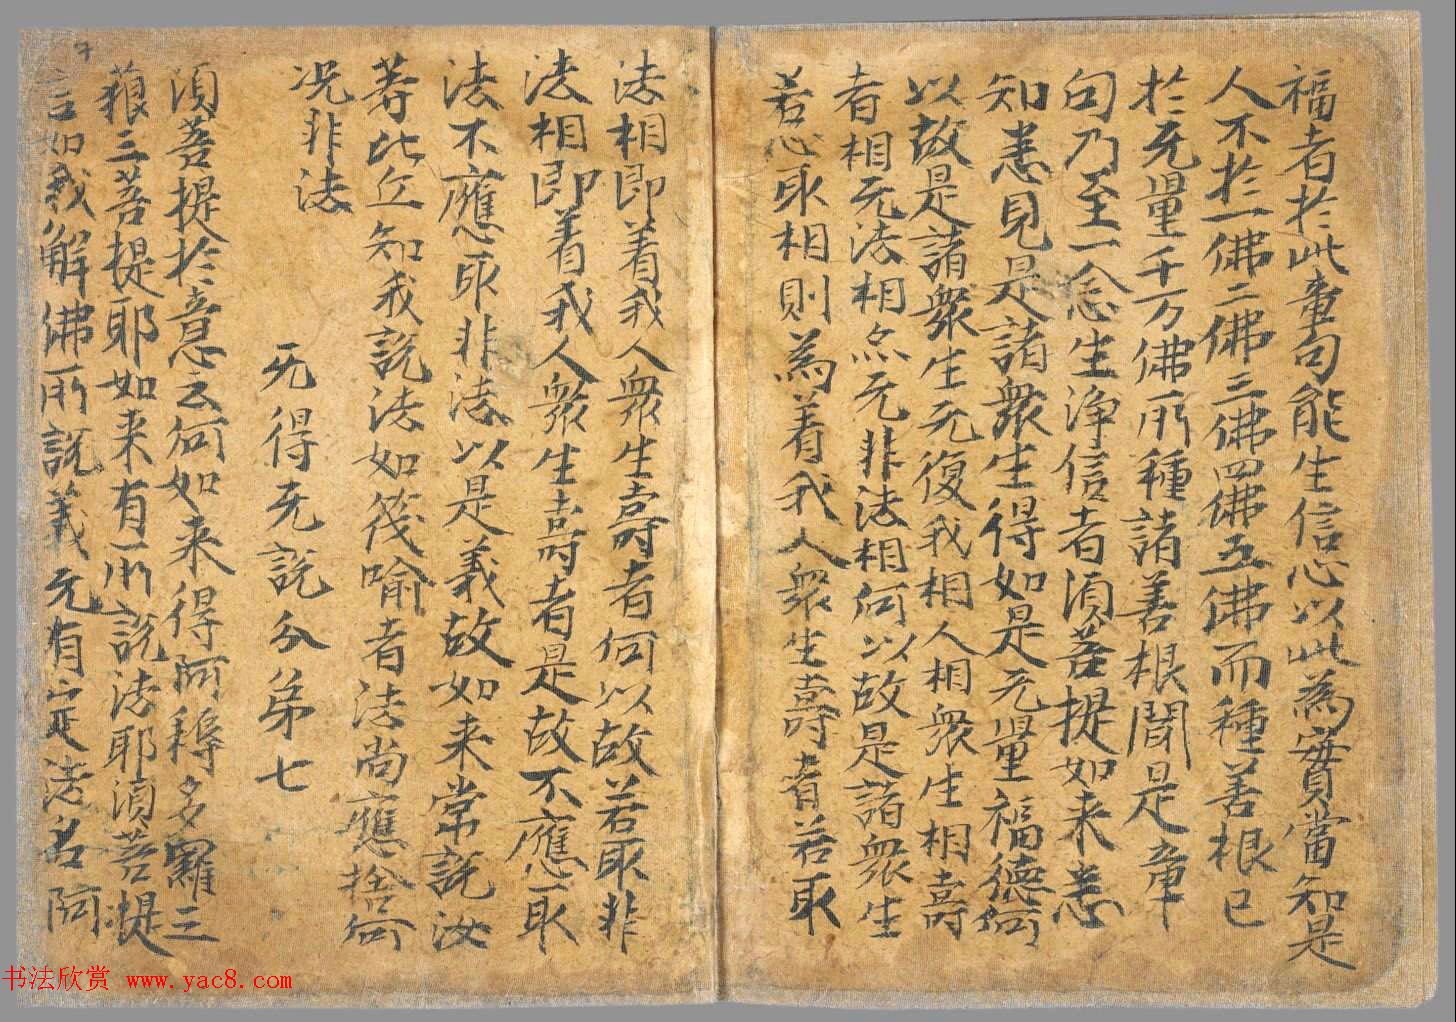 福者於此章句能生信心以此為實當知是
人不於一佛二佛三佛四佛五佛而種善根已
於无量千万佛所種諸善根聞是章
句乃至一念生淨信者須菩提如来悉
知悉見是諸衆生得如是无量福德何
以故是諸衆生无復我相人相衆生相壽
者相无法相亦无非法相何以故是諸衆生
若心取相則為着我人衆生壽者若取
法相即着我人衆生壽者何以故若取非
法相即着我人衆生壽者是故不應取
法不應取非法以是義故如来常説汝
等比丘知我説法如筏喻者法尚應捨何
况非法
无得无説分第七
須菩提於意云何如来得阿耨多羅三
藐三菩提耶如来有所説法耶須菩提
言如我解佛所説義无有定法名阿
书法欣赏 www.yac8.com